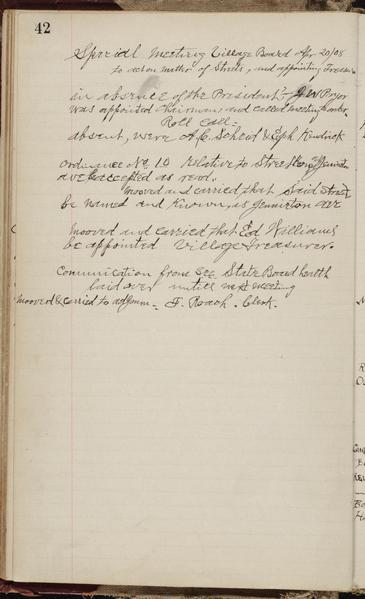 42
Special Meeting Village Board Apr 20/08
to act on matter of Streets, and appointing Treasurer
in absence of the President Pryor
was appointed Chairman and called meeting to order.
Roll Call -
absent, were A.C. Scheid & Eph Kendrick
ordinance No. 10 relative to Street
ave accepted as read.
mooved and carried that Said Street
be named and Known, as Jenniston ave
mooved and carried that Ed Williams
be appointed Village Treasurer.
Comunication from Sec. State Board health
laid over untill next meeting
mooved & carried to adjourn - F. Roach. Clerk.